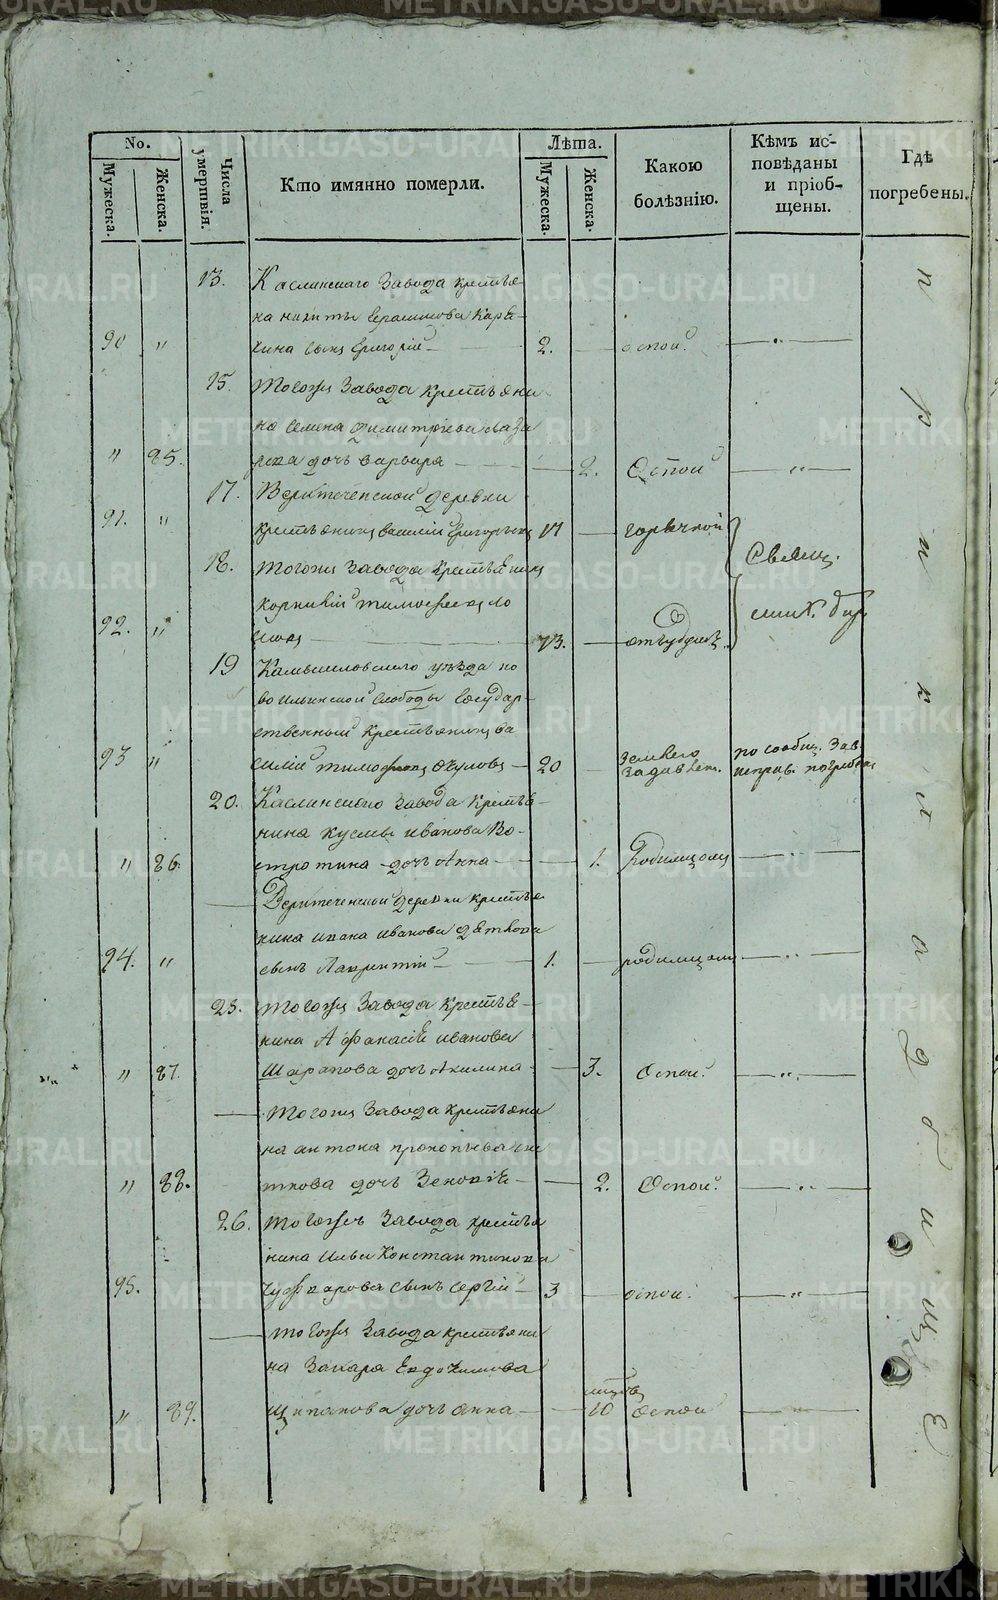 No.
Мужеска.
Женска.
Числа умертвія.
Кто имянно померли.
Лѣта.
Мужеска.
Женска.
Какою болѣзнію.
Кѣмъ исповѣданы и пріобщены.
Гдѣ погребены.
13. Каслинскаго Завода крестья-
нина никиты Герасимова Каре-
90 " кина сынъ Григорій 2. оспой. "
15. Тогожъ Завода крестьяни
на семена димитріева лаза
" 85. рева дочь варвара 2. Оспой "
17. Верхтеченской деревни
91. " крестьянинъ василій Григорьевъ 71 горячкой
18. Тогожъ Завода крестьянинъ Свящ.
корнилій тимофеевъ ло
92. " 73. отъ удушья
19 Камышловскаго уѣзда но
во ильинской слободы Государ-
ственный крестьянинъ ва
93 " силій тимофеевъ окуловъ 20 Землею задавленъ. по сообщ. Зав. исправ. погребенъ
20. Каслинскаго Завода крестья-
нина кузмы иванова Во-
" 86. стротина дочь Анна 1. родимцомъ "
Верхтеченской деревни крестья
нина ивана иванова дѣткова
94. " сынъ Лаврентій 1. родимцомъ "
25. Тогожъ Завода крестья-
нина Афанасія иванова
" 87. Шарапова дочь Акилина 3. Оспой. "
Тогожъ Завода крестьяни
на антона прокопьева
" 88. ткова дочь Зеновія 2. Оспой. "
26. Тогожъ Завода крестья
нина ильи Константинова
95. Чуфарова сынъ Сергій 3 оспой. "
Тогожъ Завода крестьяни
на Захара Евдокимова
" 89. Щипанова дочь анна 10 Оспой "
приклад
METRIKI.GASO-URAL.RU